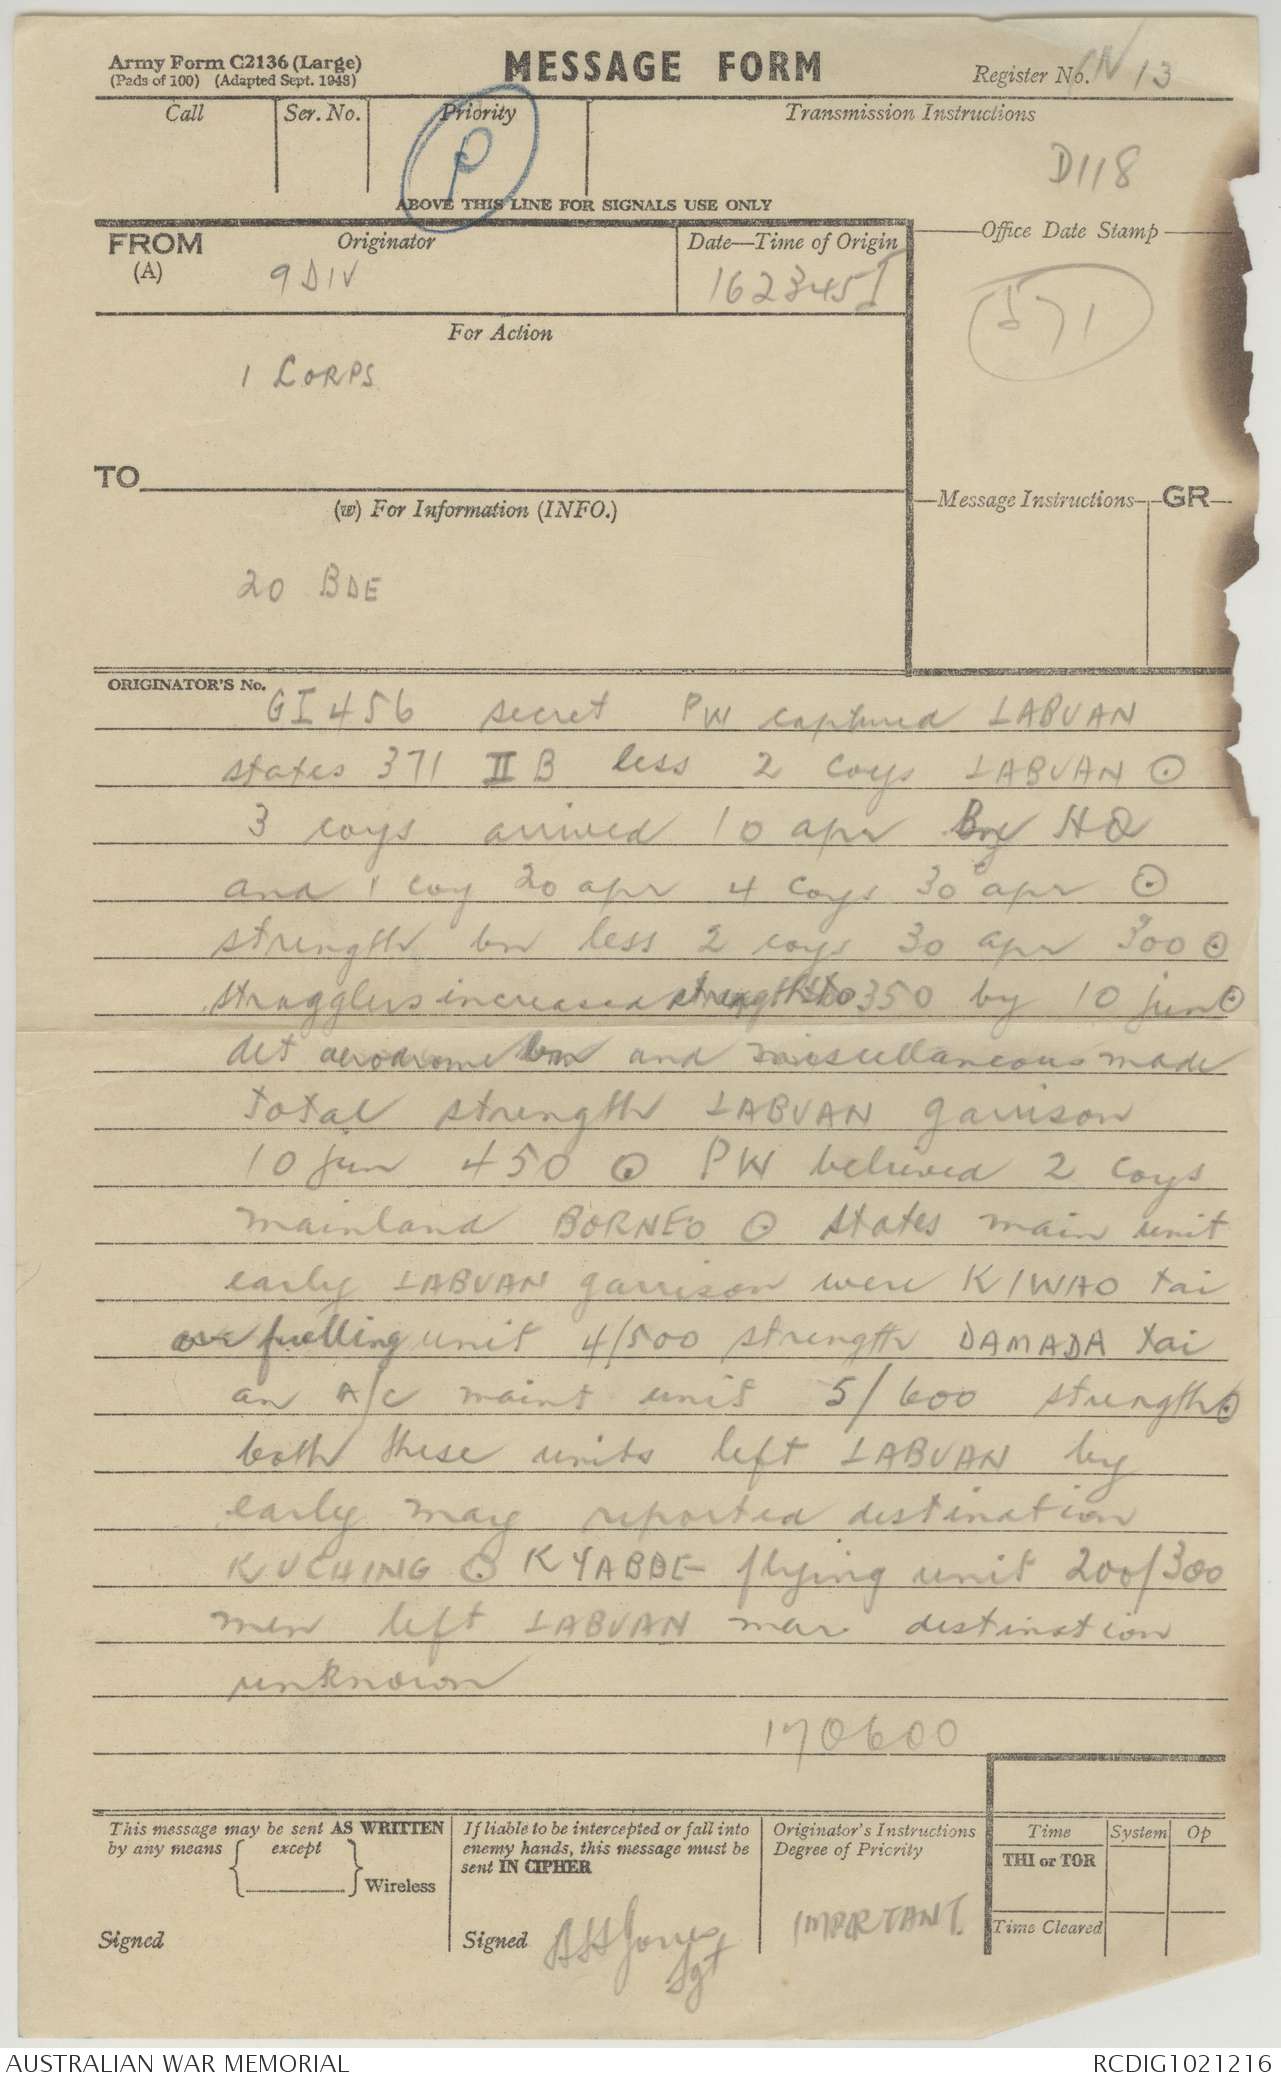 Army Form C2136 (Large)
(Pads of 100) (Adapted Sept. 1943)
MESSAGE FORM
Register No. IN 13
Call
Ser. No.
Priority
Transmission Instructions
P
D118
ABOVE THIS LINE FOR SIGNALS USE ONLY
FROM
(A)
Originator
9 DIV
Date—Time of Origin
162345I
Office Date Stamp
571
For Action
1 CORPS
TO
(w) For Information (INFO.)
20 BDE
Message Instructions
GR
ORIGINATOR'S No.
GI 456 secret PW captured LABUAN
states 371 II B less 2 coys LABUAN ⊙
3 coys arrived 10 apr HQ
and 1 coy 20 apr 4 coys 30 apr ⊙
strength bn less 2 coys 30 apr 300 ⊙
stragglers increased strength to 350 by 10 jun ⊙
det aerodrome bn and miscellaneous made
total strength LABUAN garrison
10 jun 450 ⊙ PW believed 2 coys
mainland BORNEO ⊙ states main unit
early LABUAN garrison were KIWAO tai
fuelling unit 4/500 strength DAMADA tai
an A/C maint unit 5/600 strength ⊙
both these units left LABUAN by
early may reported destination
KUCHING ⊙ KYABBE flying unit 200/300
men left LABUAN mar destination
unknown
170600
This message may be sent AS WRITTEN
by any means
except
Wireless
Signed
If liable to be intercepted or fall into
enemy hands, this message must be
sent IN CIPHER
Signed
Jones
Sgt
Originator's Instructions
Degree of Priority
IMPORTANT
Time
System
Op
THI or TOR
Time Cleared
AUSTRALIAN WAR MEMORIAL
RCDIG1021216